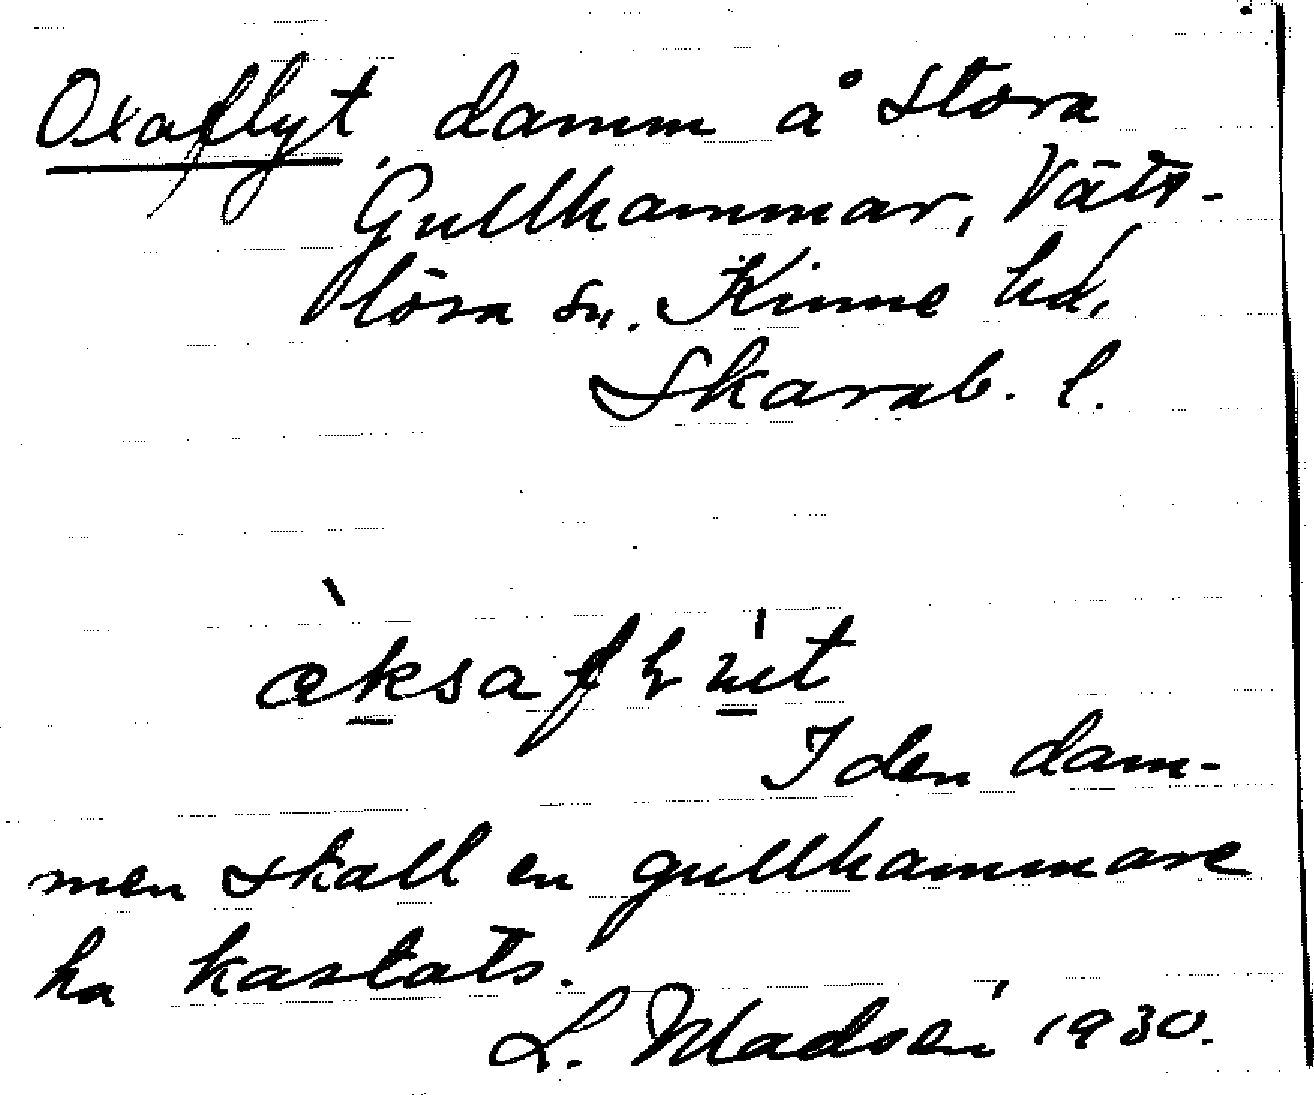 Oxaflyt, damm å Stora
Gullhammar, Vätt-
lösa sn. Kinne hd,
Skarab. l.
I den dam-
men skall en gullhammare
ha kastats.
L. Madsén 1930.